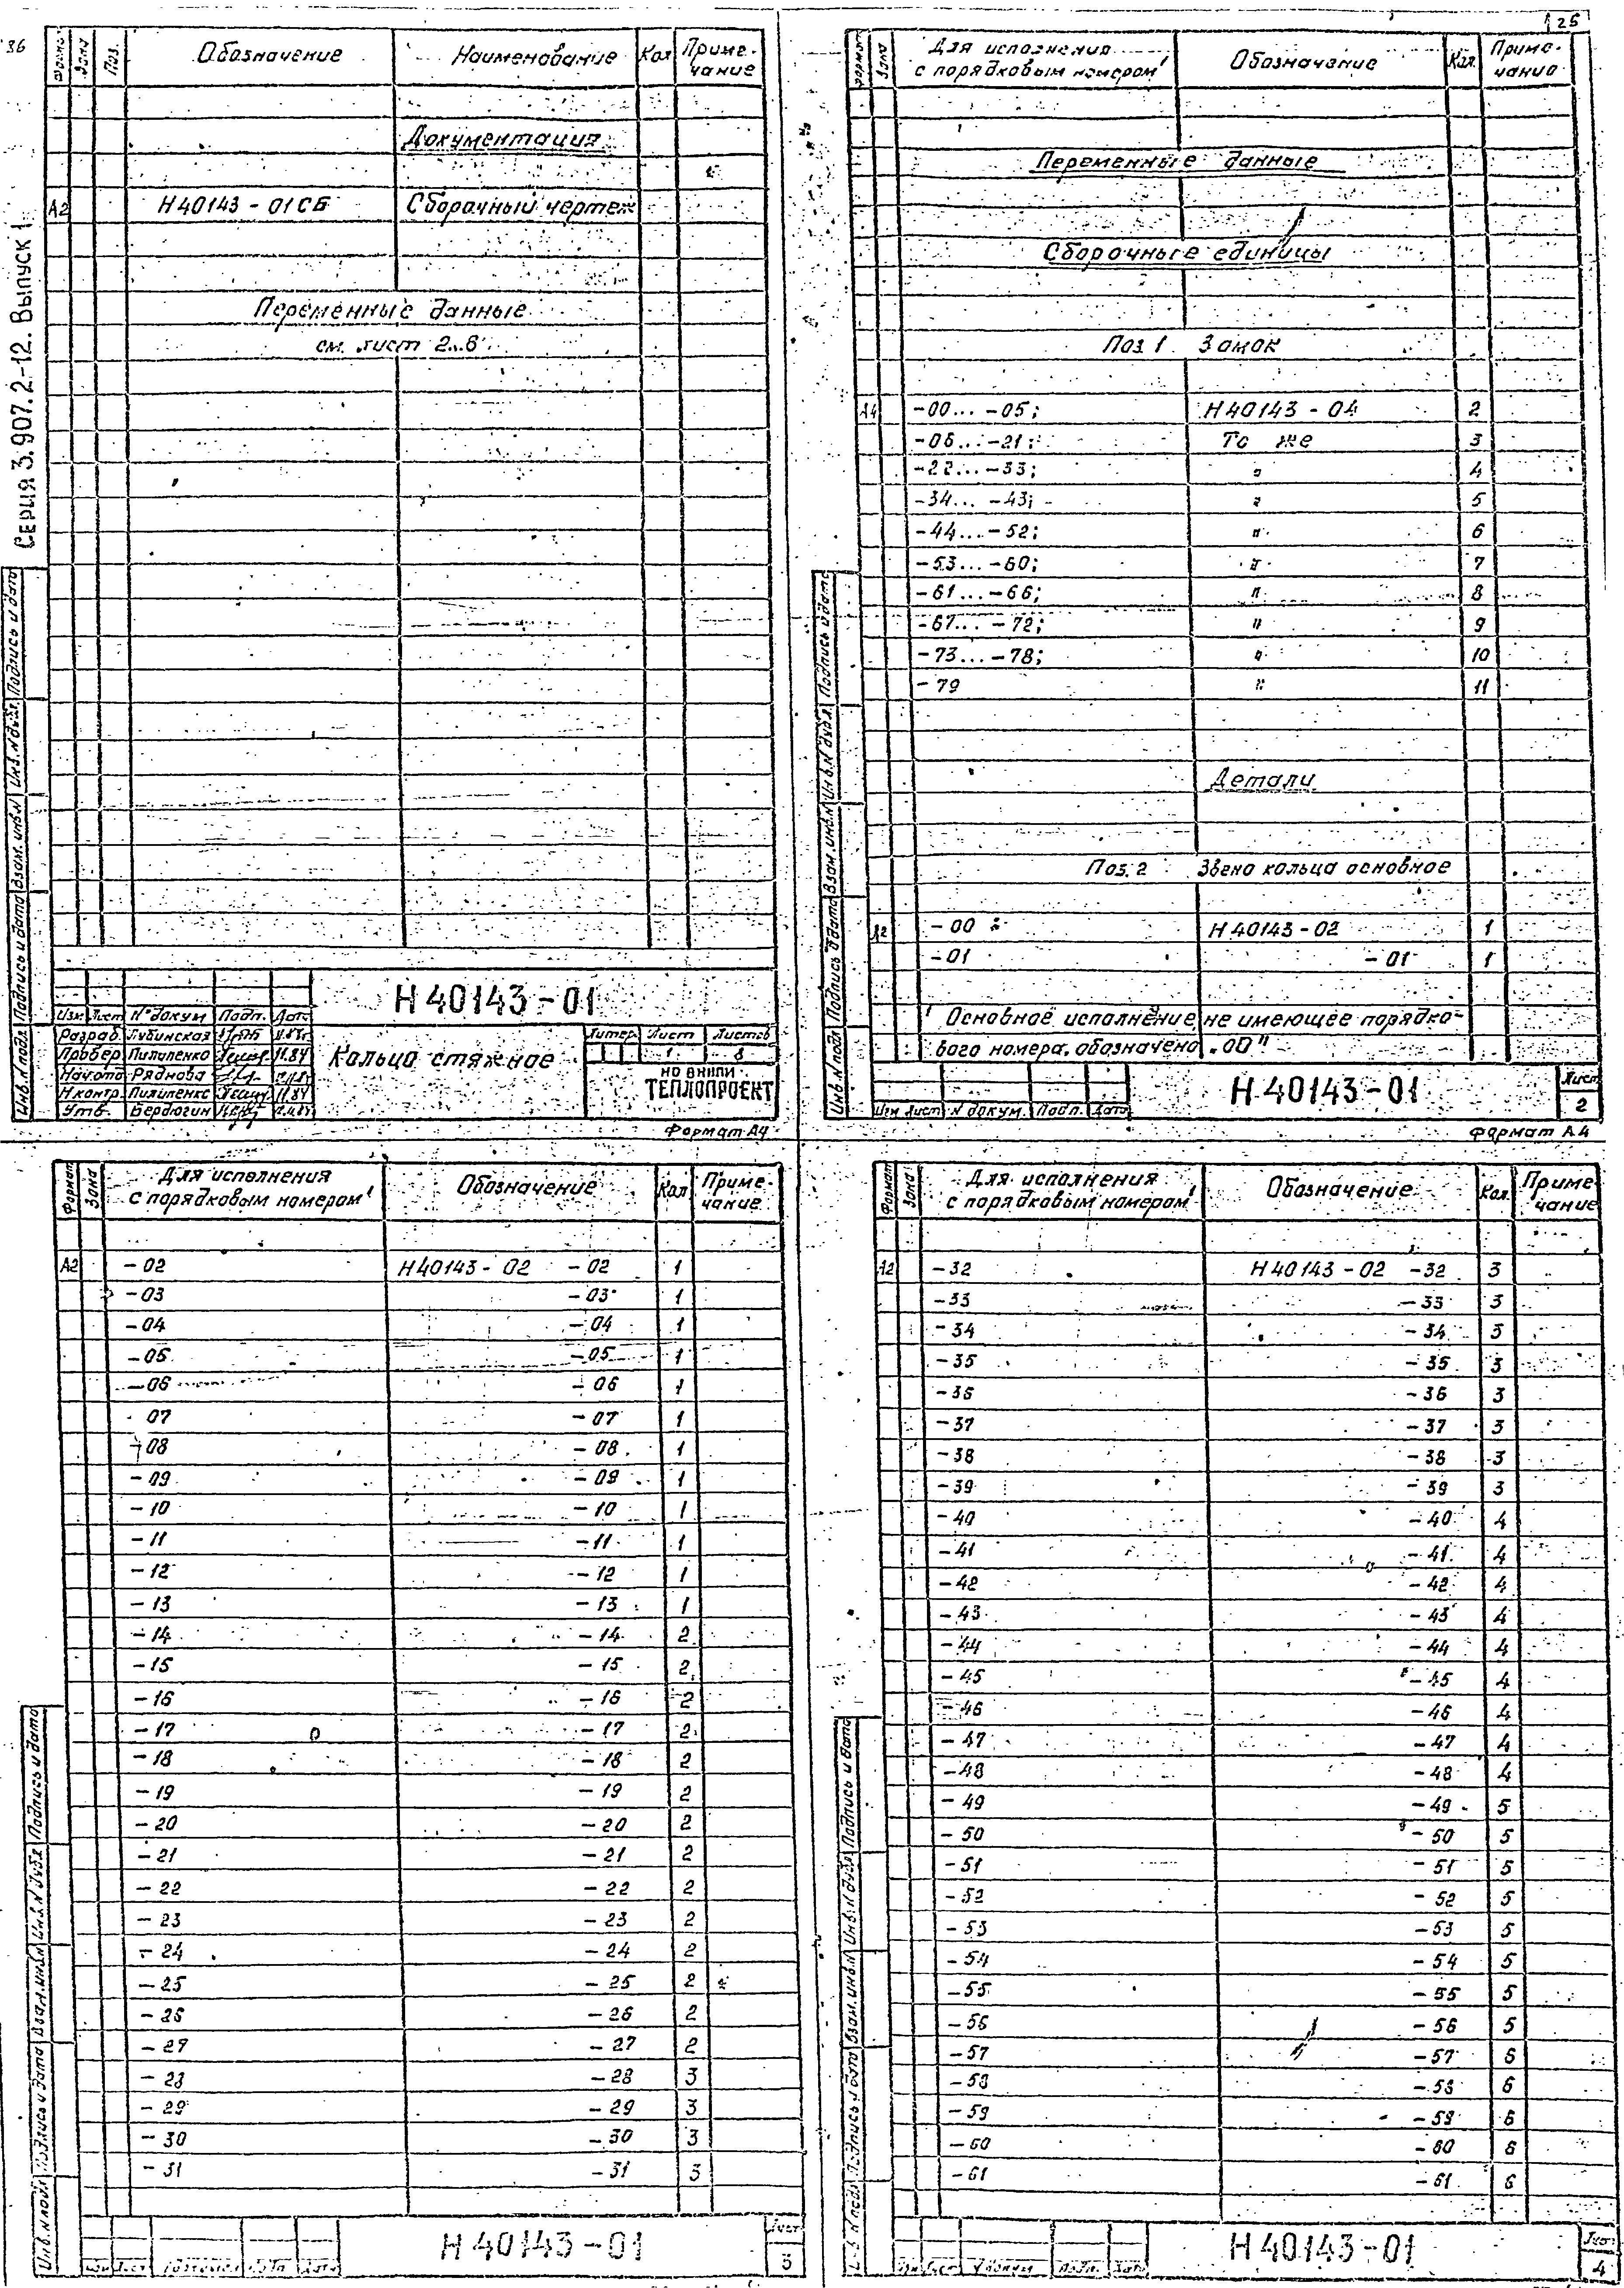 36
25
Серия 3.907.2-12. Выпуск 1
Зона Поз. Обозначение Наименование Кол Приме-
чание
Документация
А2 Н40143-01СБ Сборочный чертеж
Переменные данные
см. лист 2...8
Н40143-01
Изм. Лист N° докум Подп. Дата
Разраб. Лубинская 11.84
Провер. Пилипенко 11.84
Нач.отд Ряднова
Н.контр. Пилипенко 11.84
Утв. Бердюгин
Кольцо стяжное
Литер. Лист Листов
1 8
ВНИПИ
ТЕПЛОПРОЕКТ
Формат А4
Инв.N подл. Подпись и дата Взам.инв.N Инв.N дубл. Подпись и дата
Формат Зона Для исполнения
с порядковым номером¹ Обозначение Кол. Приме-
чание
Переменные данные
Сборочные единицы
Поз. 1 Замок
А4 -00... -05; Н40143-04 2
-06... -21; То же 3
-22... -33; " 4
-34... -43; " 5
-44... -52; " 6
-53... -60; " 7
-61... -66; " 8
-67... -72; " 9
-73... -78; " 10
-79 " 11
Детали
Поз. 2 Звено кольца основное
А2 -00 Н40143-02 1
-01 -01 1
¹ Основное исполнение, не имеющее порядко-
вого номера, обозначено „00"
Изм Лист N докум. Подп. Дата
Н40143-01
Лист
2
Формат А4
Инв.N подл. Подпись и дата Взам.инв.N Инв.N дубл. Подпись и дата
Формат Зона Для исполнения
с порядковым номером¹ Обозначение Кол Приме-
чание
А2 -02 Н40143-02 -02 1
-03 -03 1
-04 -04 1
-05 -05 1
-06 -06 1
07 -07 1
-08 -08 1
-09 -09 1
-10 -10 1
-11 -11 1
-12 -12 1
-13 -13 1
-14 -14 2
-15 -15 2
-16 -16 2
-17 -17 2
-18 -18 2
-19 -19 2
-20 -20 2
-21 -21 2
-22 -22 2
-23 -23 2
-24 -24 2
-25 -25 2
-26 -26 2
-27 -27 2
-28 -28 3
-29 -29 3
-30 -30 3
-31 -31 3
Н40143-01
Лист
3
Инв.N подл Подпись и дата Взам.инв.N Инв.N дубл Подпись и дата
Формат Зона Для исполнения
с порядковым номером¹ Обозначение Кол. Приме-
чание
А2 -32 Н40143-02 -32 3
-33 -33 3
-34 -34 3
-35 -35 3
-36 -36 3
-37 -37 3
-38 -38 3
-39 -39 3
-40 -40 4
-41 -41 4
-42 -42 4
-43 -43 4
-44 -44 4
-45 -45 4
-46 -46 4
-47 -47 4
-48 -48 4
-49 -49 5
-50 -50 5
-51 -51 5
-52 -52 5
-53 -53 5
-54 -54 5
-55 -55 5
-56 -56 5
-57 -57 6
-58 -58 6
-59 -59 6
-60 -60 6
-61 -61 6
Н40143-01
Лист
4
Подпись и дата Взам.инв.N Инв.N дубл Подпись и дата